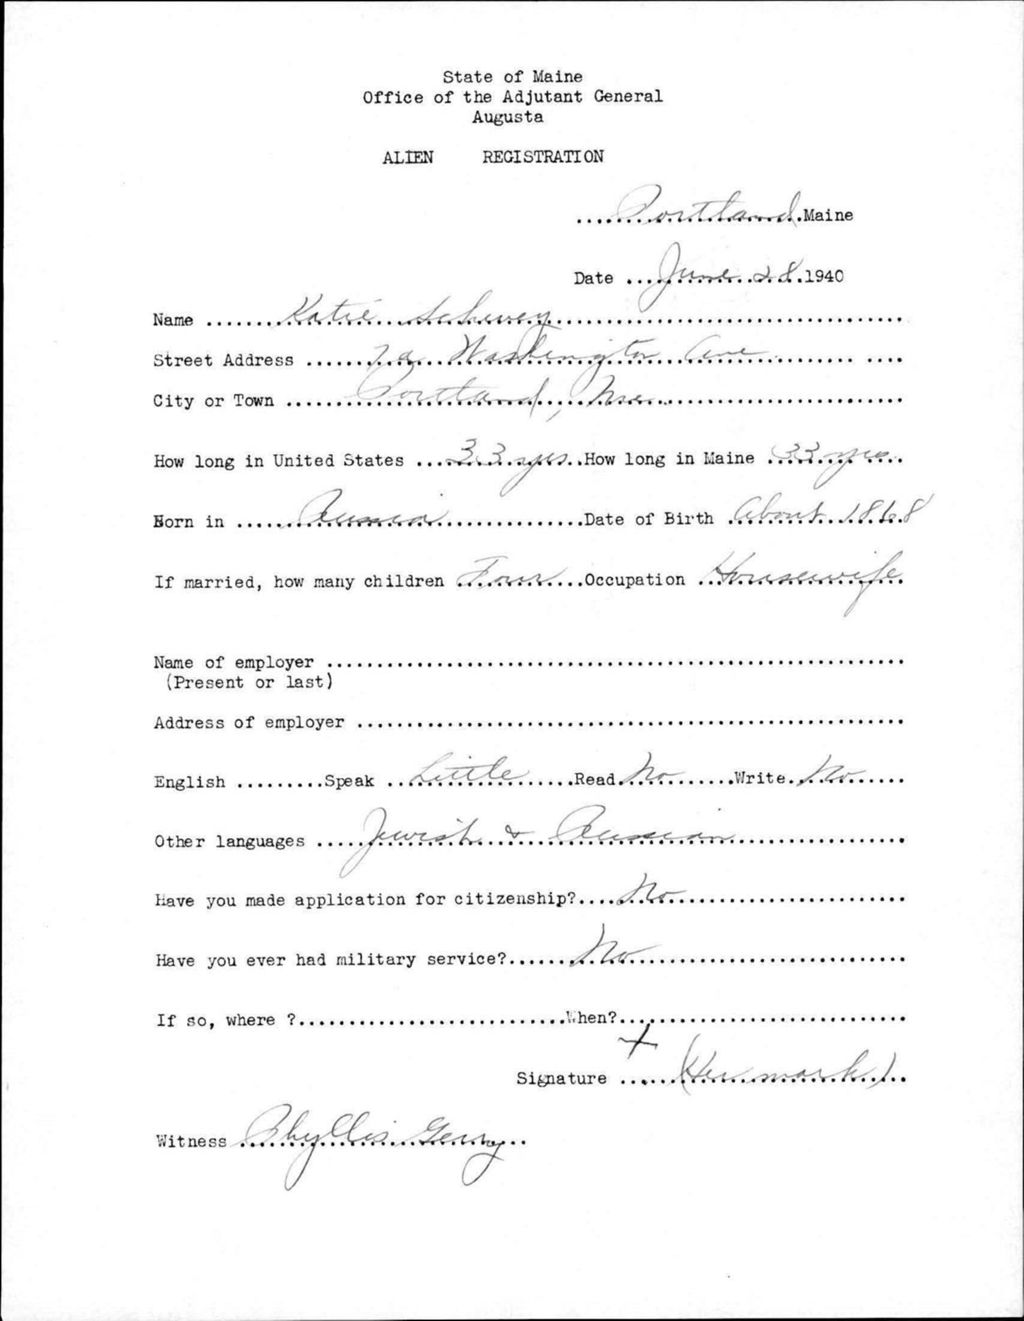 State of Maine
Office of the Adjutant General
Augusta
ALIEN REGISTRATION
Portland Maine
Date June 28 1940
Name Katie Schwey
Street Address Washington Ave
City or Town Portland, Me.
How long in United States 33 yrs How long in Maine 33 yrs
Born in Russia Date of Birth About 1868
If married, how many children Four Occupation Housewife
Name of employer
(Present or last)
Address of employer
English Speak Little Read No Write No
Other languages Jewish & Russian
Have you made application for citizenship? No
Have you ever had military service? No
If so, where ? When?
Signature X (Her mark)
Witness Phyllis Gerry